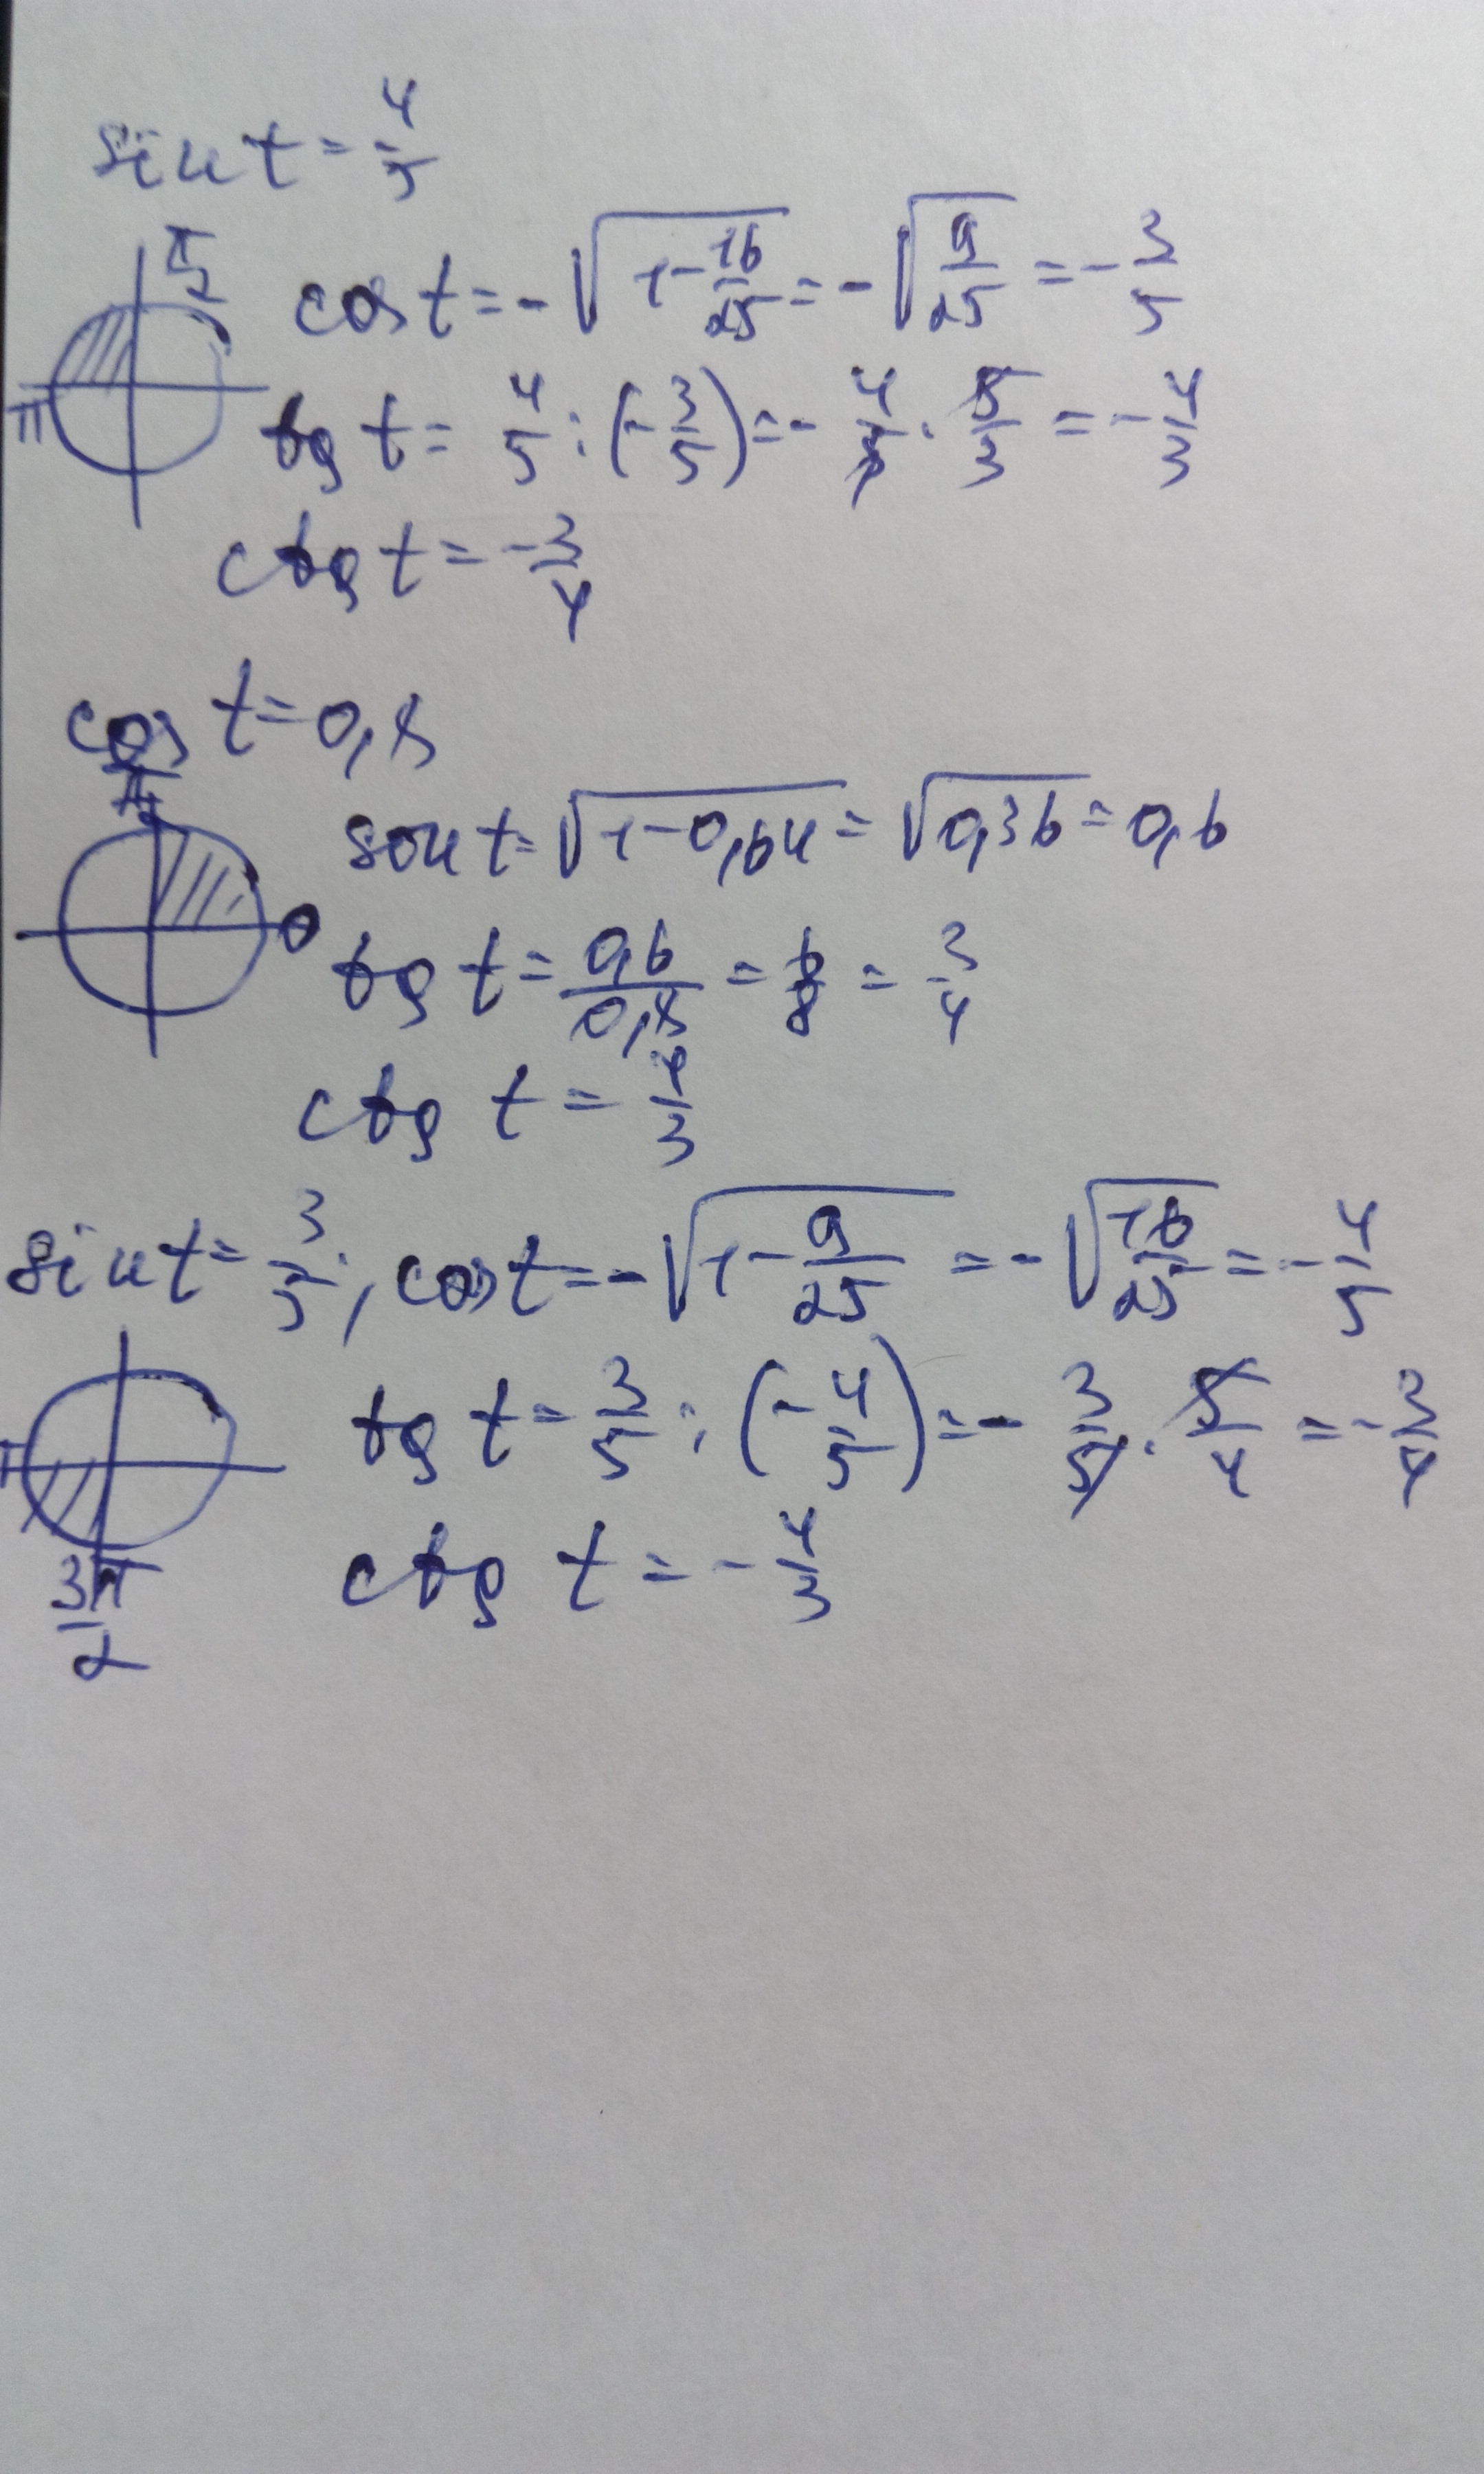 sin t = 4/5
π/2
cos t = - √(1 - 16/25) = - √(9/25) = - 3/5
π
tg t = 4/5 : (- 3/5) = - 4/5 · 5/3 = - 4/3
ctg t = - 3/4
cos t = 0,8
π/2
sin t = √(1 - 0,64) = √0,36 = 0,6
0
tg t = 0,6/0,8 = 6/8 = 3/4
ctg t = 4/3
sin t = 3/5; cos t = - √(1 - 9/25) = - √(16/25) = - 4/5
π
tg t = 3/5 : (- 4/5) = - 3/5 · 5/4 = - 3/4
3π/2
ctg t = - 4/3